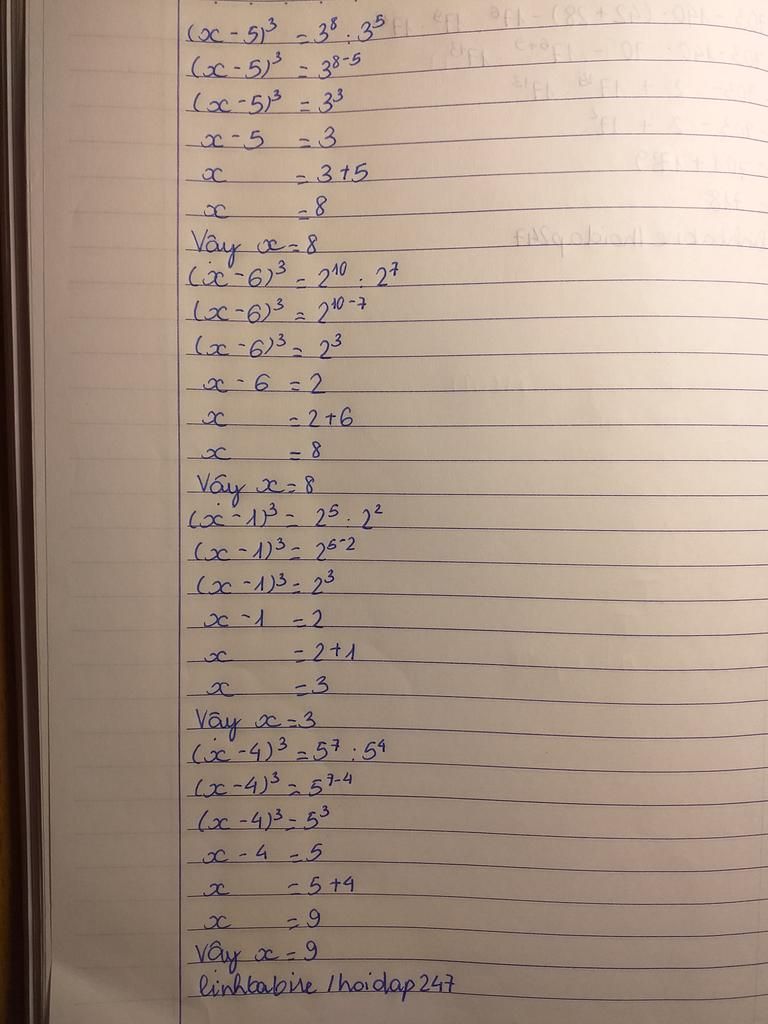 (x - 5)³ = 3⁸ : 3⁵
(x - 5)³ = 3⁸⁻⁵
(x - 5)³ = 3³
x - 5 = 3
x = 3 + 5
x = 8
Vậy x = 8
(x - 6)³ = 2¹⁰ : 2⁷
(x - 6)³ = 2¹⁰⁻⁷
(x - 6)³ = 2³
x - 6 = 2
x = 2 + 6
x = 8
Vậy x = 8
(x - 1)³ = 2⁵ : 2²
(x - 1)³ = 2⁵⁻²
(x - 1)³ = 2³
x - 1 = 2
x = 2 + 1
x = 3
Vậy x = 3
(x - 4)³ = 5⁷ : 5⁴
(x - 4)³ = 5⁷⁻⁴
(x - 4)³ = 5³
x - 4 = 5
x = 5 + 4
x = 9
Vậy x = 9
/hoidap247